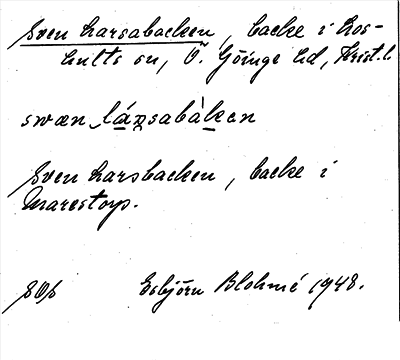 Sven Larsabacken, backe i Los-
hults sn, Ö. Göinge hd, Krist. l.
swæn lázsabàkæn
Sven Larsbacken, backe i
Marestorp.
SOb
Esbjörn Blohmé 1948.